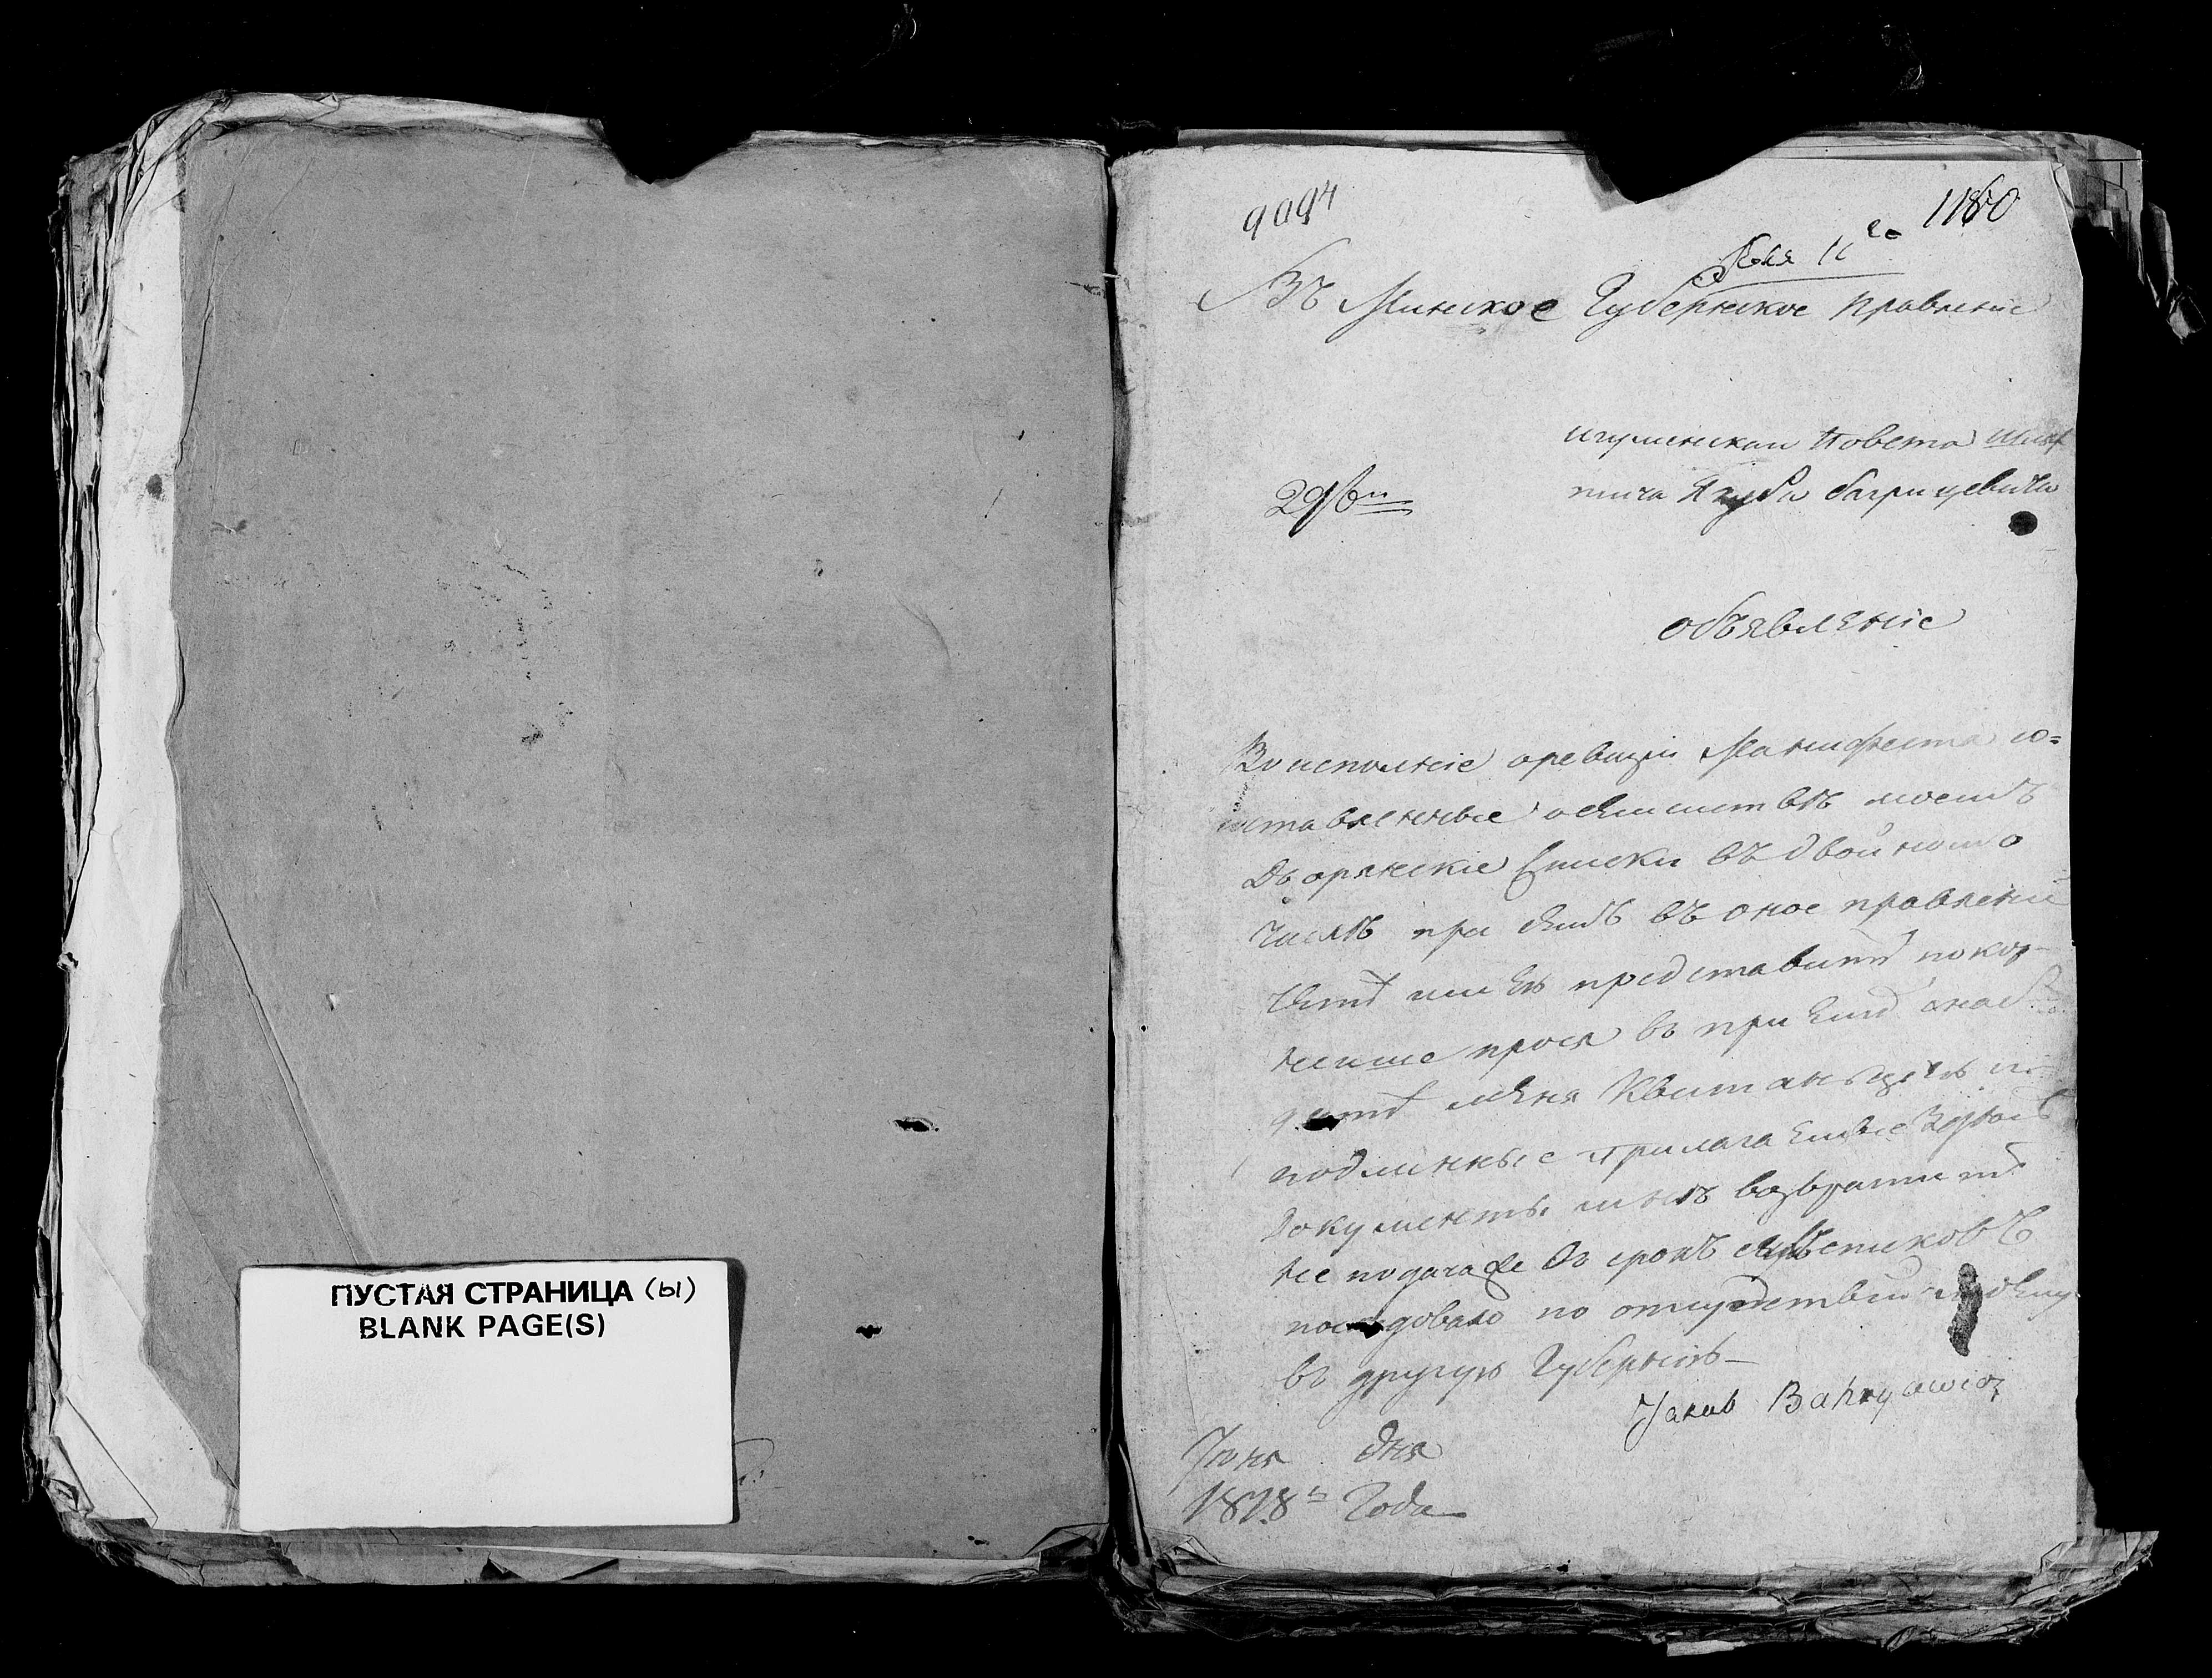 ПУСТАЯ СТРАНИЦА (ы)
BLANK PAGE(S)
9094
1180
Въ Минское Губернское Правленіе
игуменскаи Повета шлях
тича Якуба багрицевича
объявленіе
Во исполніе оревизіи Манифеста со=
ставленные осемействѣ моемъ
Дворянскіе Списки въ двойномъ
числѣ при семъ въ оное правлени
имею представить покор-
неише прося въ
меня Квитанъциею
подлинные прилагаемые
документы мнѣ возвратить
не подача же въ срокъ
последовало по отсудствии моему
въ другую Губернію
Jakub Bahrycewicz
Июня дня
1818 Года